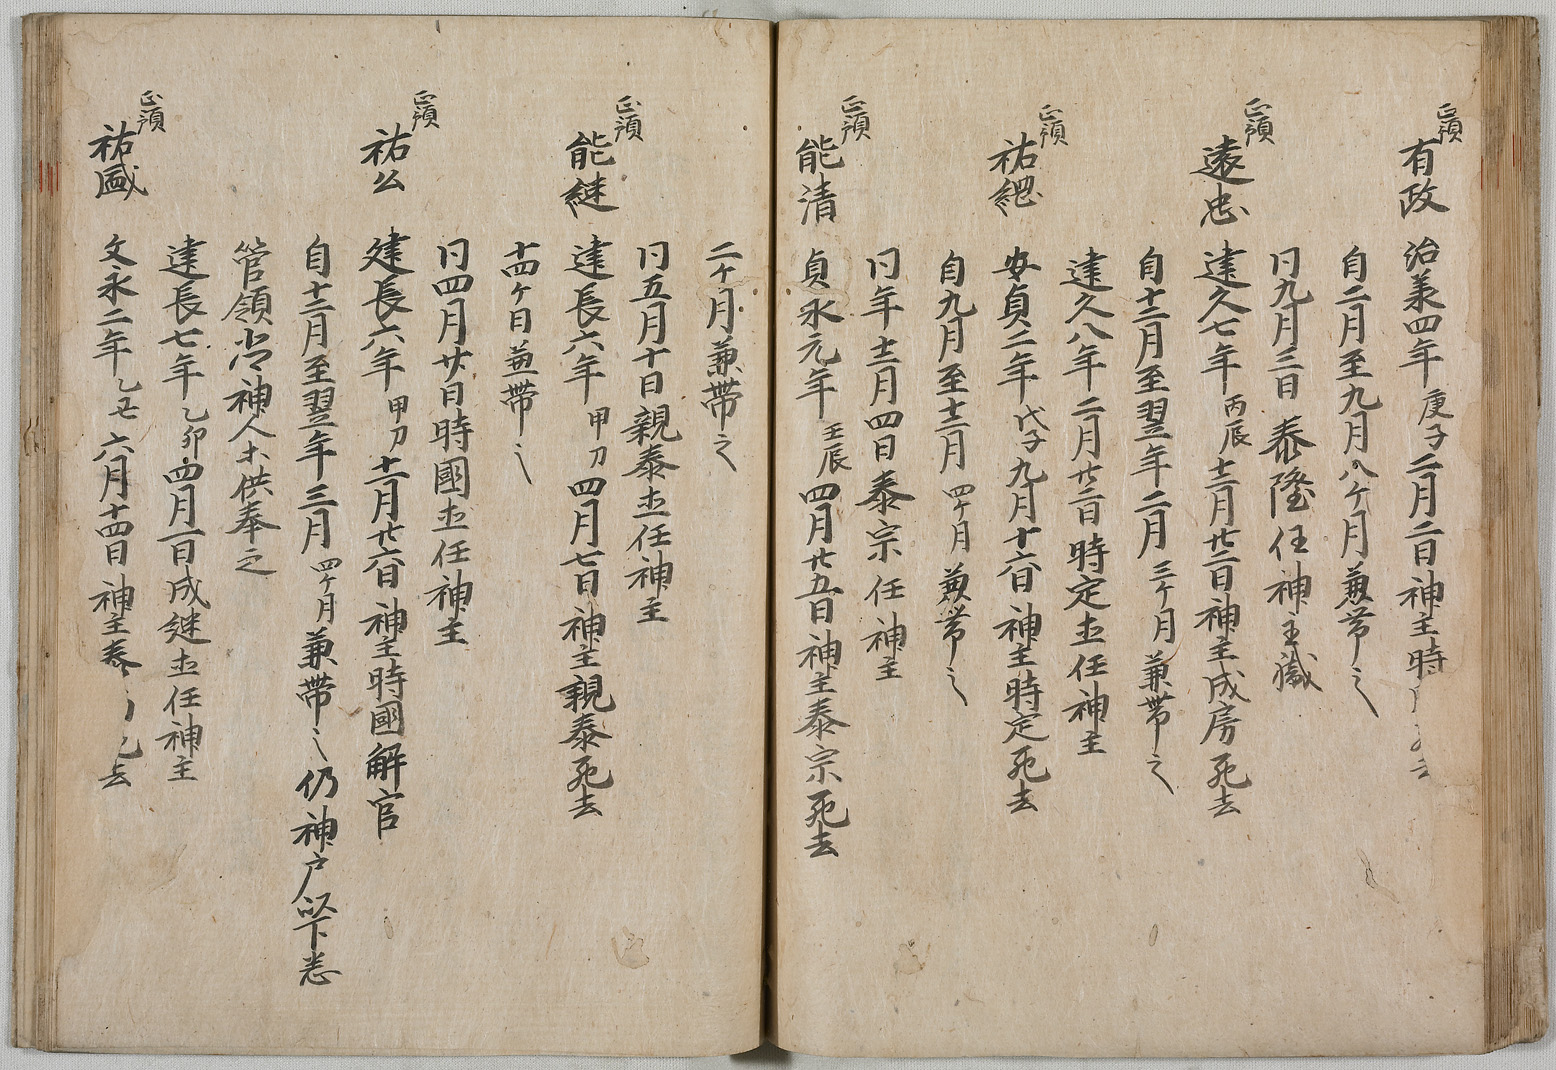 正預
有政 治羕四年庚子二月二日神主時
自二月至九月八ケ月兼帯之
同九月三日泰隆任神主職
正預
遠忠 建久七年丙辰十二月廿二日神主成房死去
自十二月至翌年二月三ケ月兼帯之
建久八年二月廿二日時定任神主
正預
祐綱 安貞二年戊子九月十六日神主時定死去
自九月至十二月四ケ月兼帯之
同年十二月四日泰宗任神主
正預
能清 貞永元年壬辰四月廿五日神主泰宗死去
二ケ月兼帯之
同五月十日親泰任神主
正預
能継 建長六年甲刀四月七日神主親泰死去
十四ケ日兼帯之
同四月廿日時國任神主
正預
祐公 建長六年甲刀十一月廿六日神主時國解官
自十二月至翌年三月四ケ月兼帯之仍神戸以下悉
管領尚神人供奉之
建長七年乙卯四月一日成継任神主
正預
祐盛 文永二年乙丑六月十四日神主泰 死去